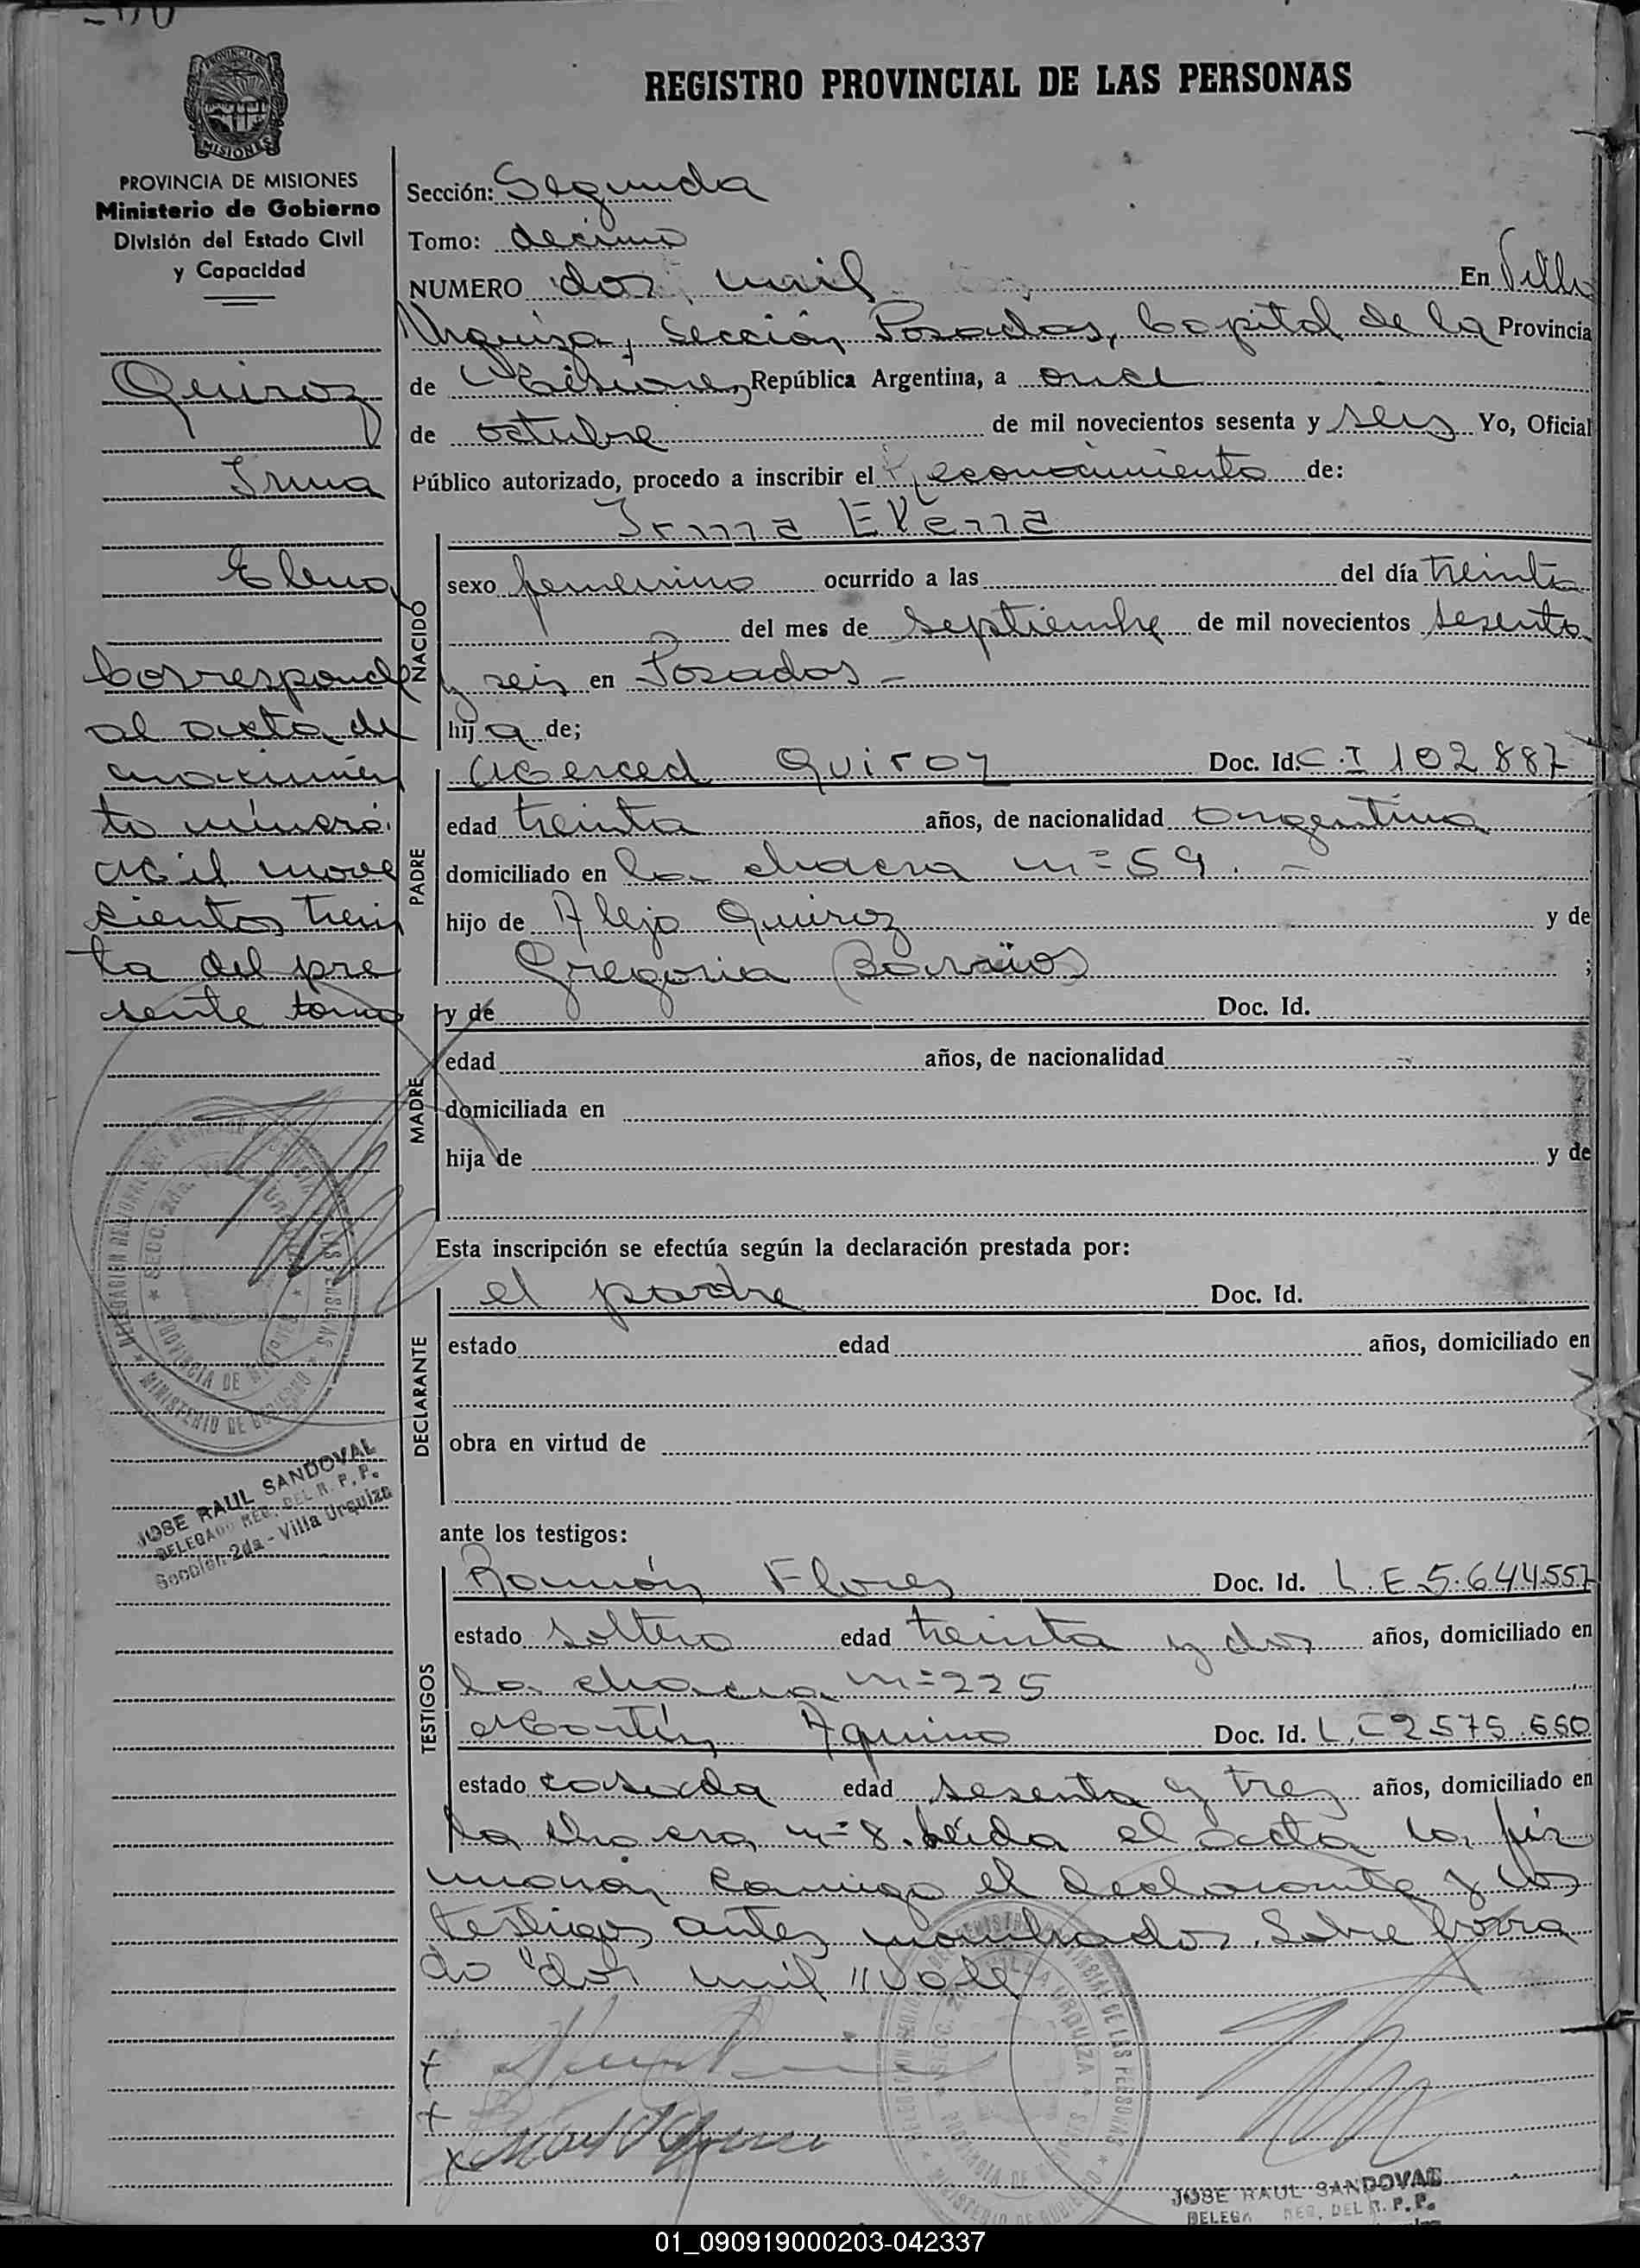 REGISTRO PROVINCIAL DE LAS PERSONAS
MISIONES
PROVINCIA DE MISIONES
Ministerio de Gobierno
División del Estado Civil
y Capacidad
Quiroz
Irma
Elena
Corresponde
al acta de
nacimien
to número
Mil nove
cientos trein
ta del pre
sente tomo
JOSE RAUL SANDOVAL
DELEGADO REG. DEL R. P. P.
Sección 2da - Villa Urquiza
Sección: Segunda
Tomo: decimo
NUMERO dos mil En Villa
Urquiza, Sección Posadas, Capital de la Provincia
de Misiones, República Argentina, a once
de octubre de mil novecientos sesenta y seis Yo, Oficial
Público autorizado, procedo a inscribir el Reconocimiento de:
NACIDO
Irma Elena
sexo femenino ocurrido a las del día treinta
del mes de septiembre de mil novecientos sesenta
y seis en Posadas -
hija de;
PADRE
Merced Quiroz Doc. Id. C.I 102887
edad treinta años, de nacionalidad argentina
domiciliado en la chacra n=59. -
hijo de Alejo Quiroz y de
Gregoria Barrios ;
MADRE
y de Doc. Id.
edad años, de nacionalidad
domiciliada en
hija de y de
Esta inscripción se efectúa según la declaración prestada por:
DECLARANTE
el padre Doc. Id.
estado edad años, domiciliado en
obra en virtud de
ante los testigos:
TESTIGOS
Ramón Flores Doc. Id. L.E.5.644.557
estado soltero edad treinta y dos años, domiciliado en
la chacra n=225
Martín Aquino Doc. Id. L.E 2575.650
estado casado edad sesenta y tres años, domiciliado en
la chacra n=8. Leída el acta la fir
maron conmigo el declarante y los
testigos antes nombrados. Sobre borra
do "dos mil" Vale
JOSE RAUL SANDOVAL
REG. DEL R. P. P.
01_090919000203-042337